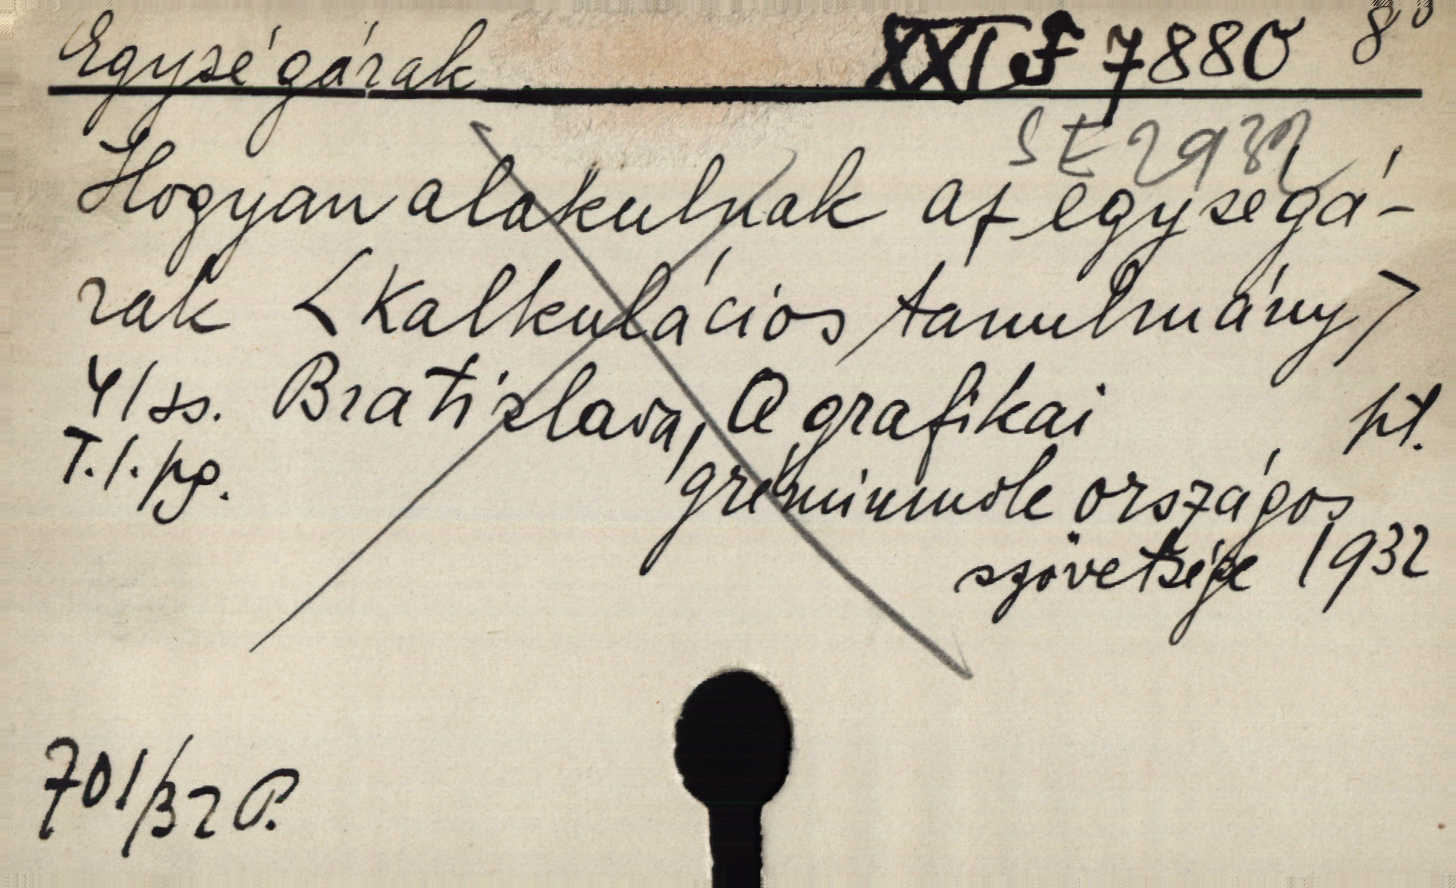 Egységárak XXI F 7880 8°
SE 2932
Hogyan alakulnak az egységá-
rak <Kalkulációs tanulmány>
41 ss. Bratislava, A grafikai pt.
T. 1. pg. grémiumok országos
szövetsége 1932
701/32 P.